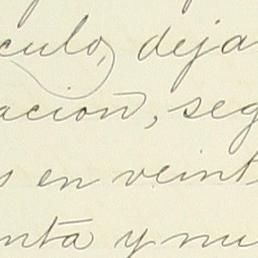 culo, deja
ación, seg
s en veint
nta y nu